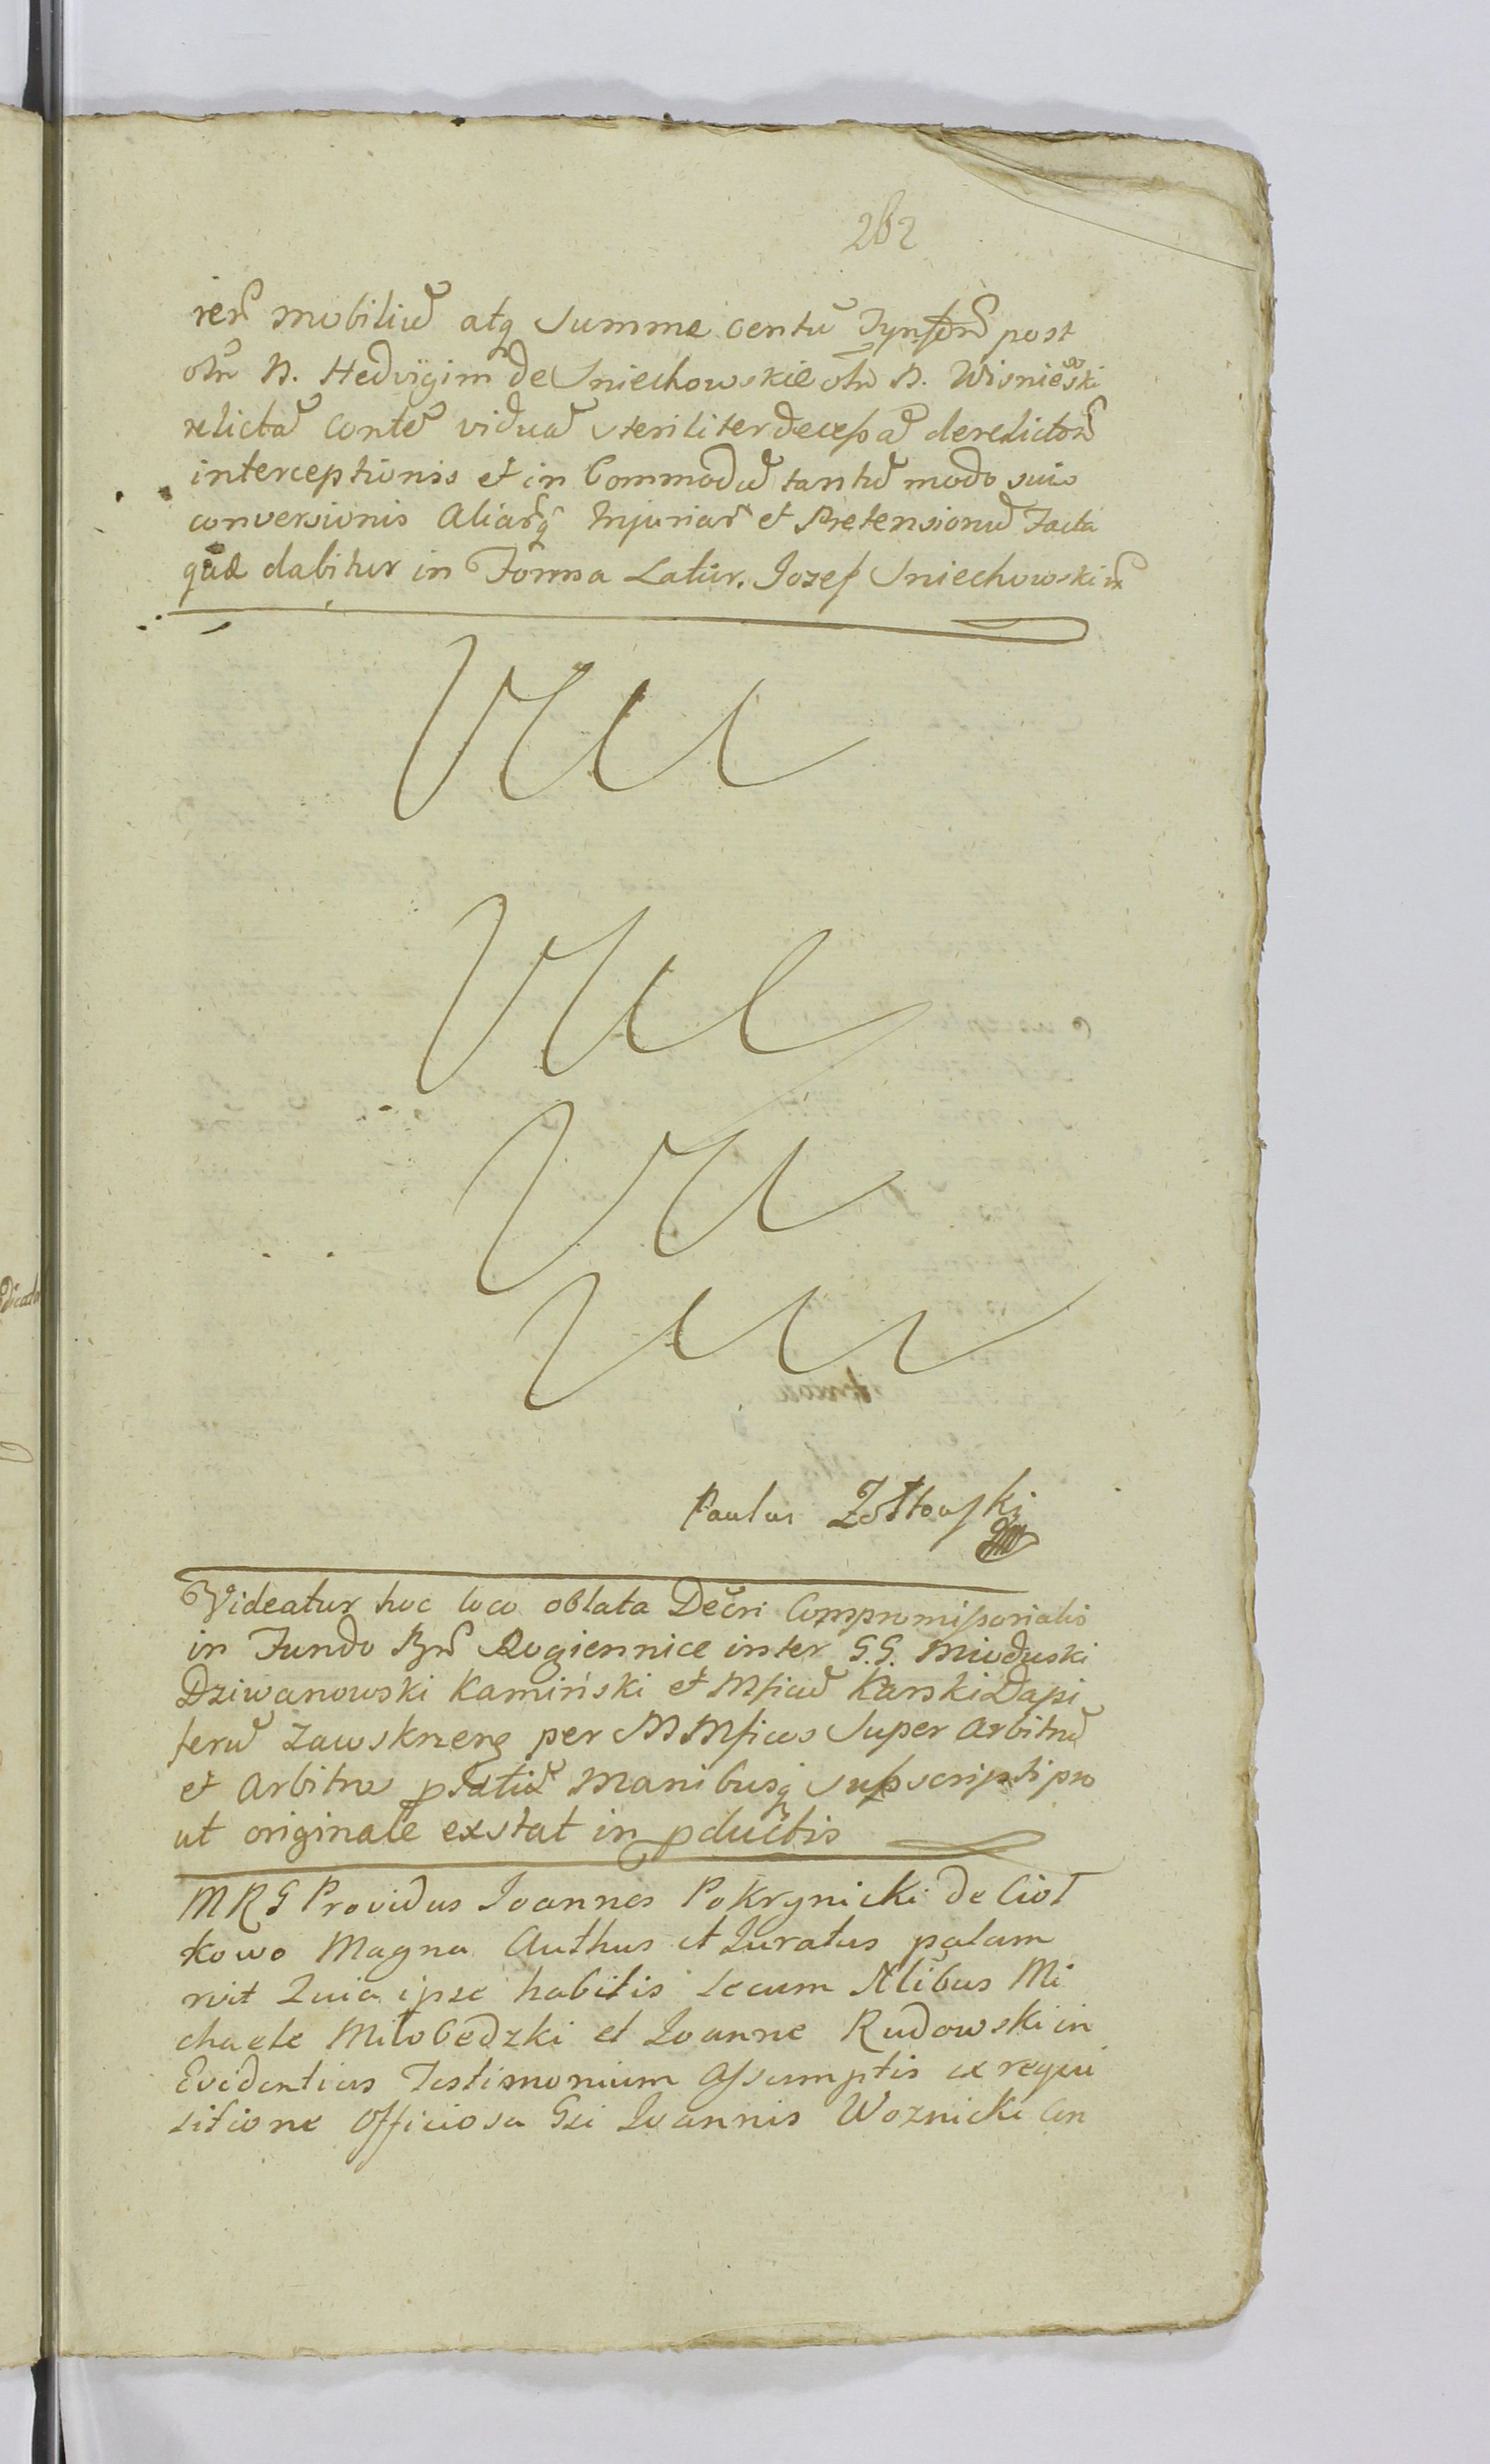 262
rerũ mobiliũ atq summe centũ Tynforũ post
olim N. Hedvigim de Sniechowskie olim N. Wisniewski
relictã conte viduã steriliter decessã derelictorũ
interceptionis et in Commodũ tantũ modo suis
conversionis Aliarq Injuriarũ et Pretensionũ Facta
quæ dabitur in Forma Latir. Josef Sniechowski
Paulus Zołtowski
Videatur hoc loco oblata Decri Compromissorialis
in Fundo Bnr Rogiennice inter G.G. Miuduski
Dziwanowski Kamiński et Mficũ Karski Dapi
ferũ Zawskrzens per MMficos Super arbitrũ
et Arbitros manibusq subscripti pro
ut originale exstat in pductis
MRG Providus Joannes Pokrynicki de Cioł
kowo Magna Authus et Juratus palam
rvit Quia ipse habitis secum Nlibus Mi
chaele Milobedzki et Joanne Rudowski in
Evidentius Testimonium assumptis ex requi
sitione Officiosa Gsi Joannis Woznicki Can